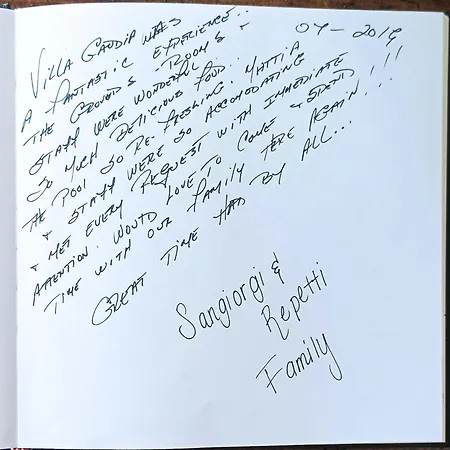 07-2019
VILLA GANDIA WAS
A FANTASTIC EXPERIENCE..
THE GROUNDS - ROOMS &
STAFF WERE WONDERFUL
SO MUCH DELICIOUS FOOD...
THE POOL SO RE-FRESHING. MATTIA
& STAFF WERE SO ACCOMODATING
& MET EVERY REQUEST WITH IMMEDIATE
ATTENTION. WOULD LOVE TO COME & SPEND
TIME WITH OUR FAMILY THERE AGAIN!!!
GREAT TIME HAD BY ALL...
Sangiorgi &
Repetti
Family